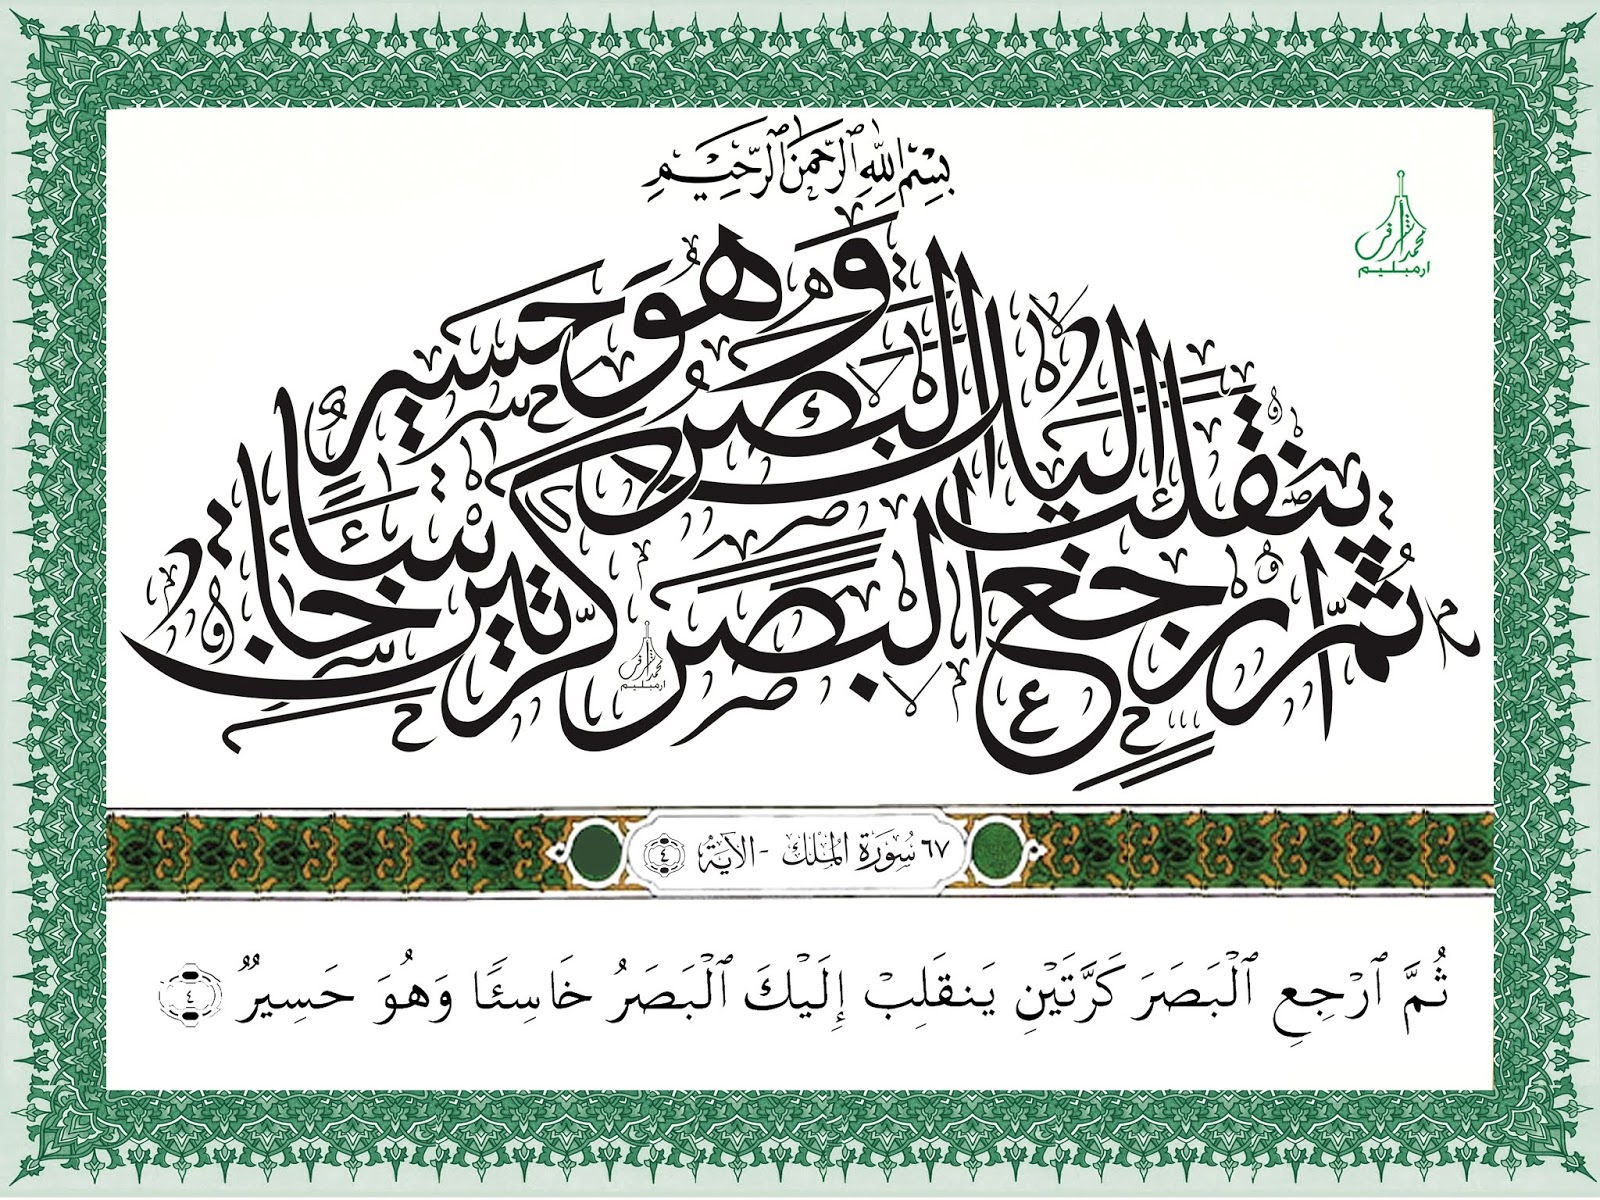 بِسْمِ ٱللَّهِ ٱلرَّحْمَٰنِ ٱلرَّحِيمِ
محمد أشرف
ارمبليم
ثُمَّ ارْجِعِ الْبَصَرَ كَرَّتَيْنِ يَنقَلِبْ إِلَيْكَ الْبَصَرُ خَاسِئًا وَهُوَ حَسِيرٌ
ارمبليم
٦٧ سُورَة المُلك - الآيَة ٤
ثُمَّ ٱرْجِعِ ٱلْبَصَرَ كَرَّتَيْنِ يَنقَلِبْ إِلَيْكَ ٱلْبَصَرُ خَاسِئًا وَهُوَ حَسِيرٌ ٤